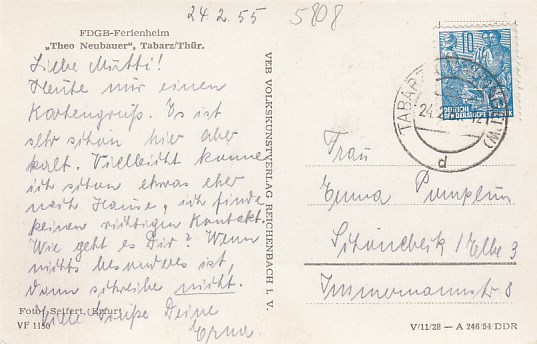 24.2.55
5808
FDGB-Ferienheim
„Theo Neubauer", Tabarz/Thür.
Liebe Mutti!
Heute nur einen
Kartengruß. Es ist
sehr schön hier aber
kalt. Vielleicht komme
ich schon etwas eher
nach Hause, ich finde
keinen richtigen Kontakt.
Wie geht es Dir? Wenn
nichts besonderes ist,
dann schreibe nicht.
Viele Grüße Deine
Erna.
Foto: Seifert, Erfurt
VF 1150
VEB VOLKSKUNSTVERLAG REICHENBACH I. V.
10
DEUTSCHE
DEMOKRATISCHE REPUBLIK
TABARZ
24.2
d
Frau
Emma Pumplun
Schönebeck / Elbe 3
Immermannstr 8
V/11/28 — A 246/54 DDR